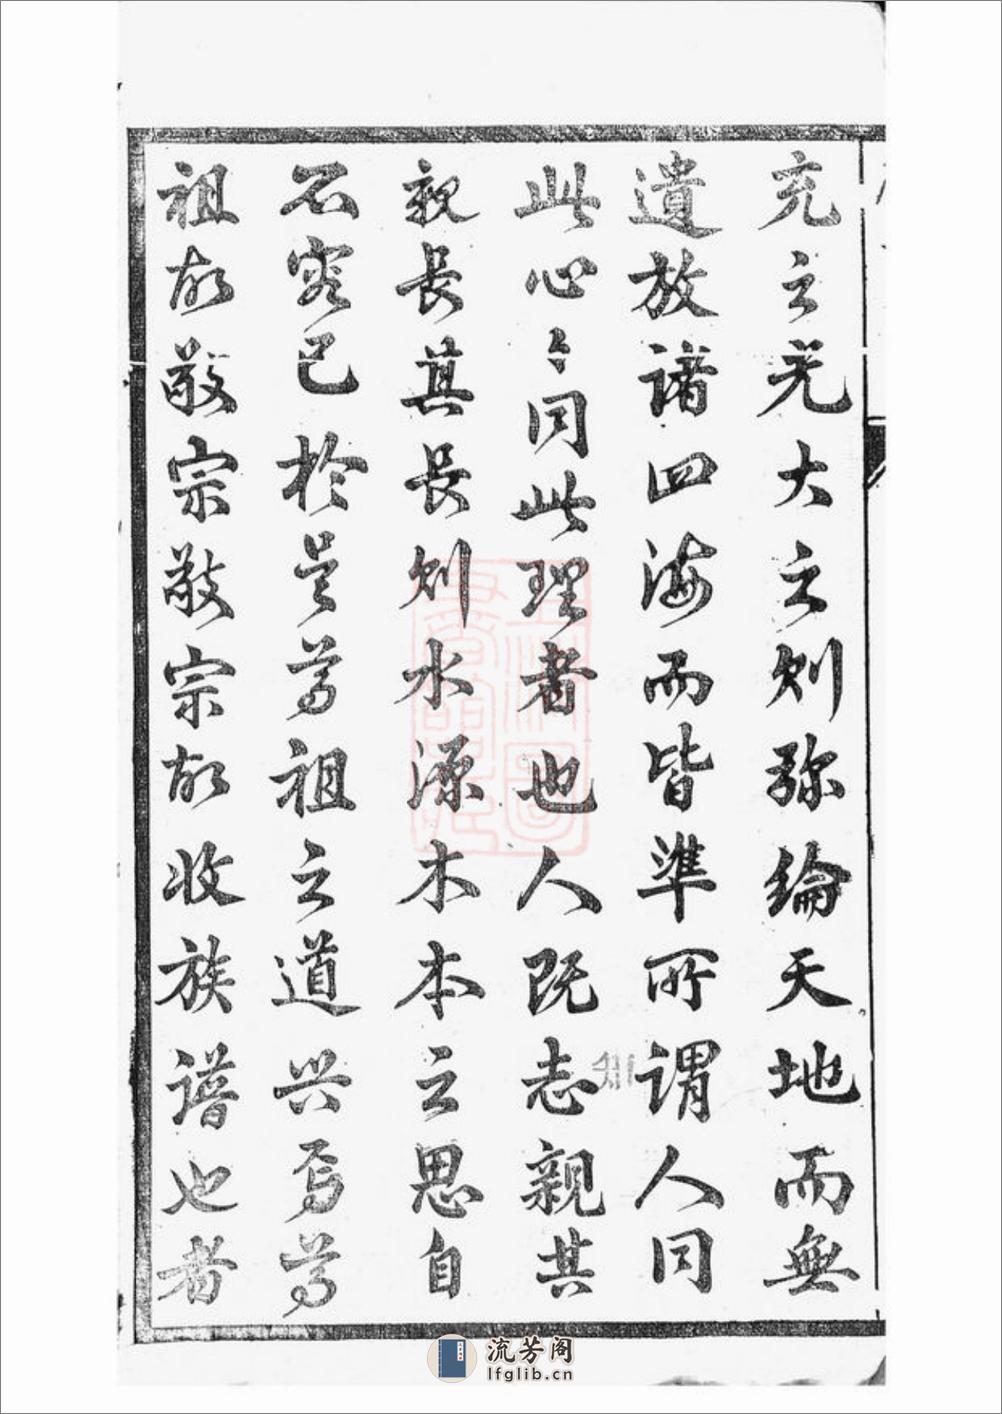 充之光大之則弥綸天地而無
遺放諸四海而皆準所謂人同
此心〻同此理者也人既志親其
親長其長則水源木本之思自
不容已於是尊祖之道興焉尊
祖故敬宗敬宗故收族譜也者
流芳阁
lfglib.cn